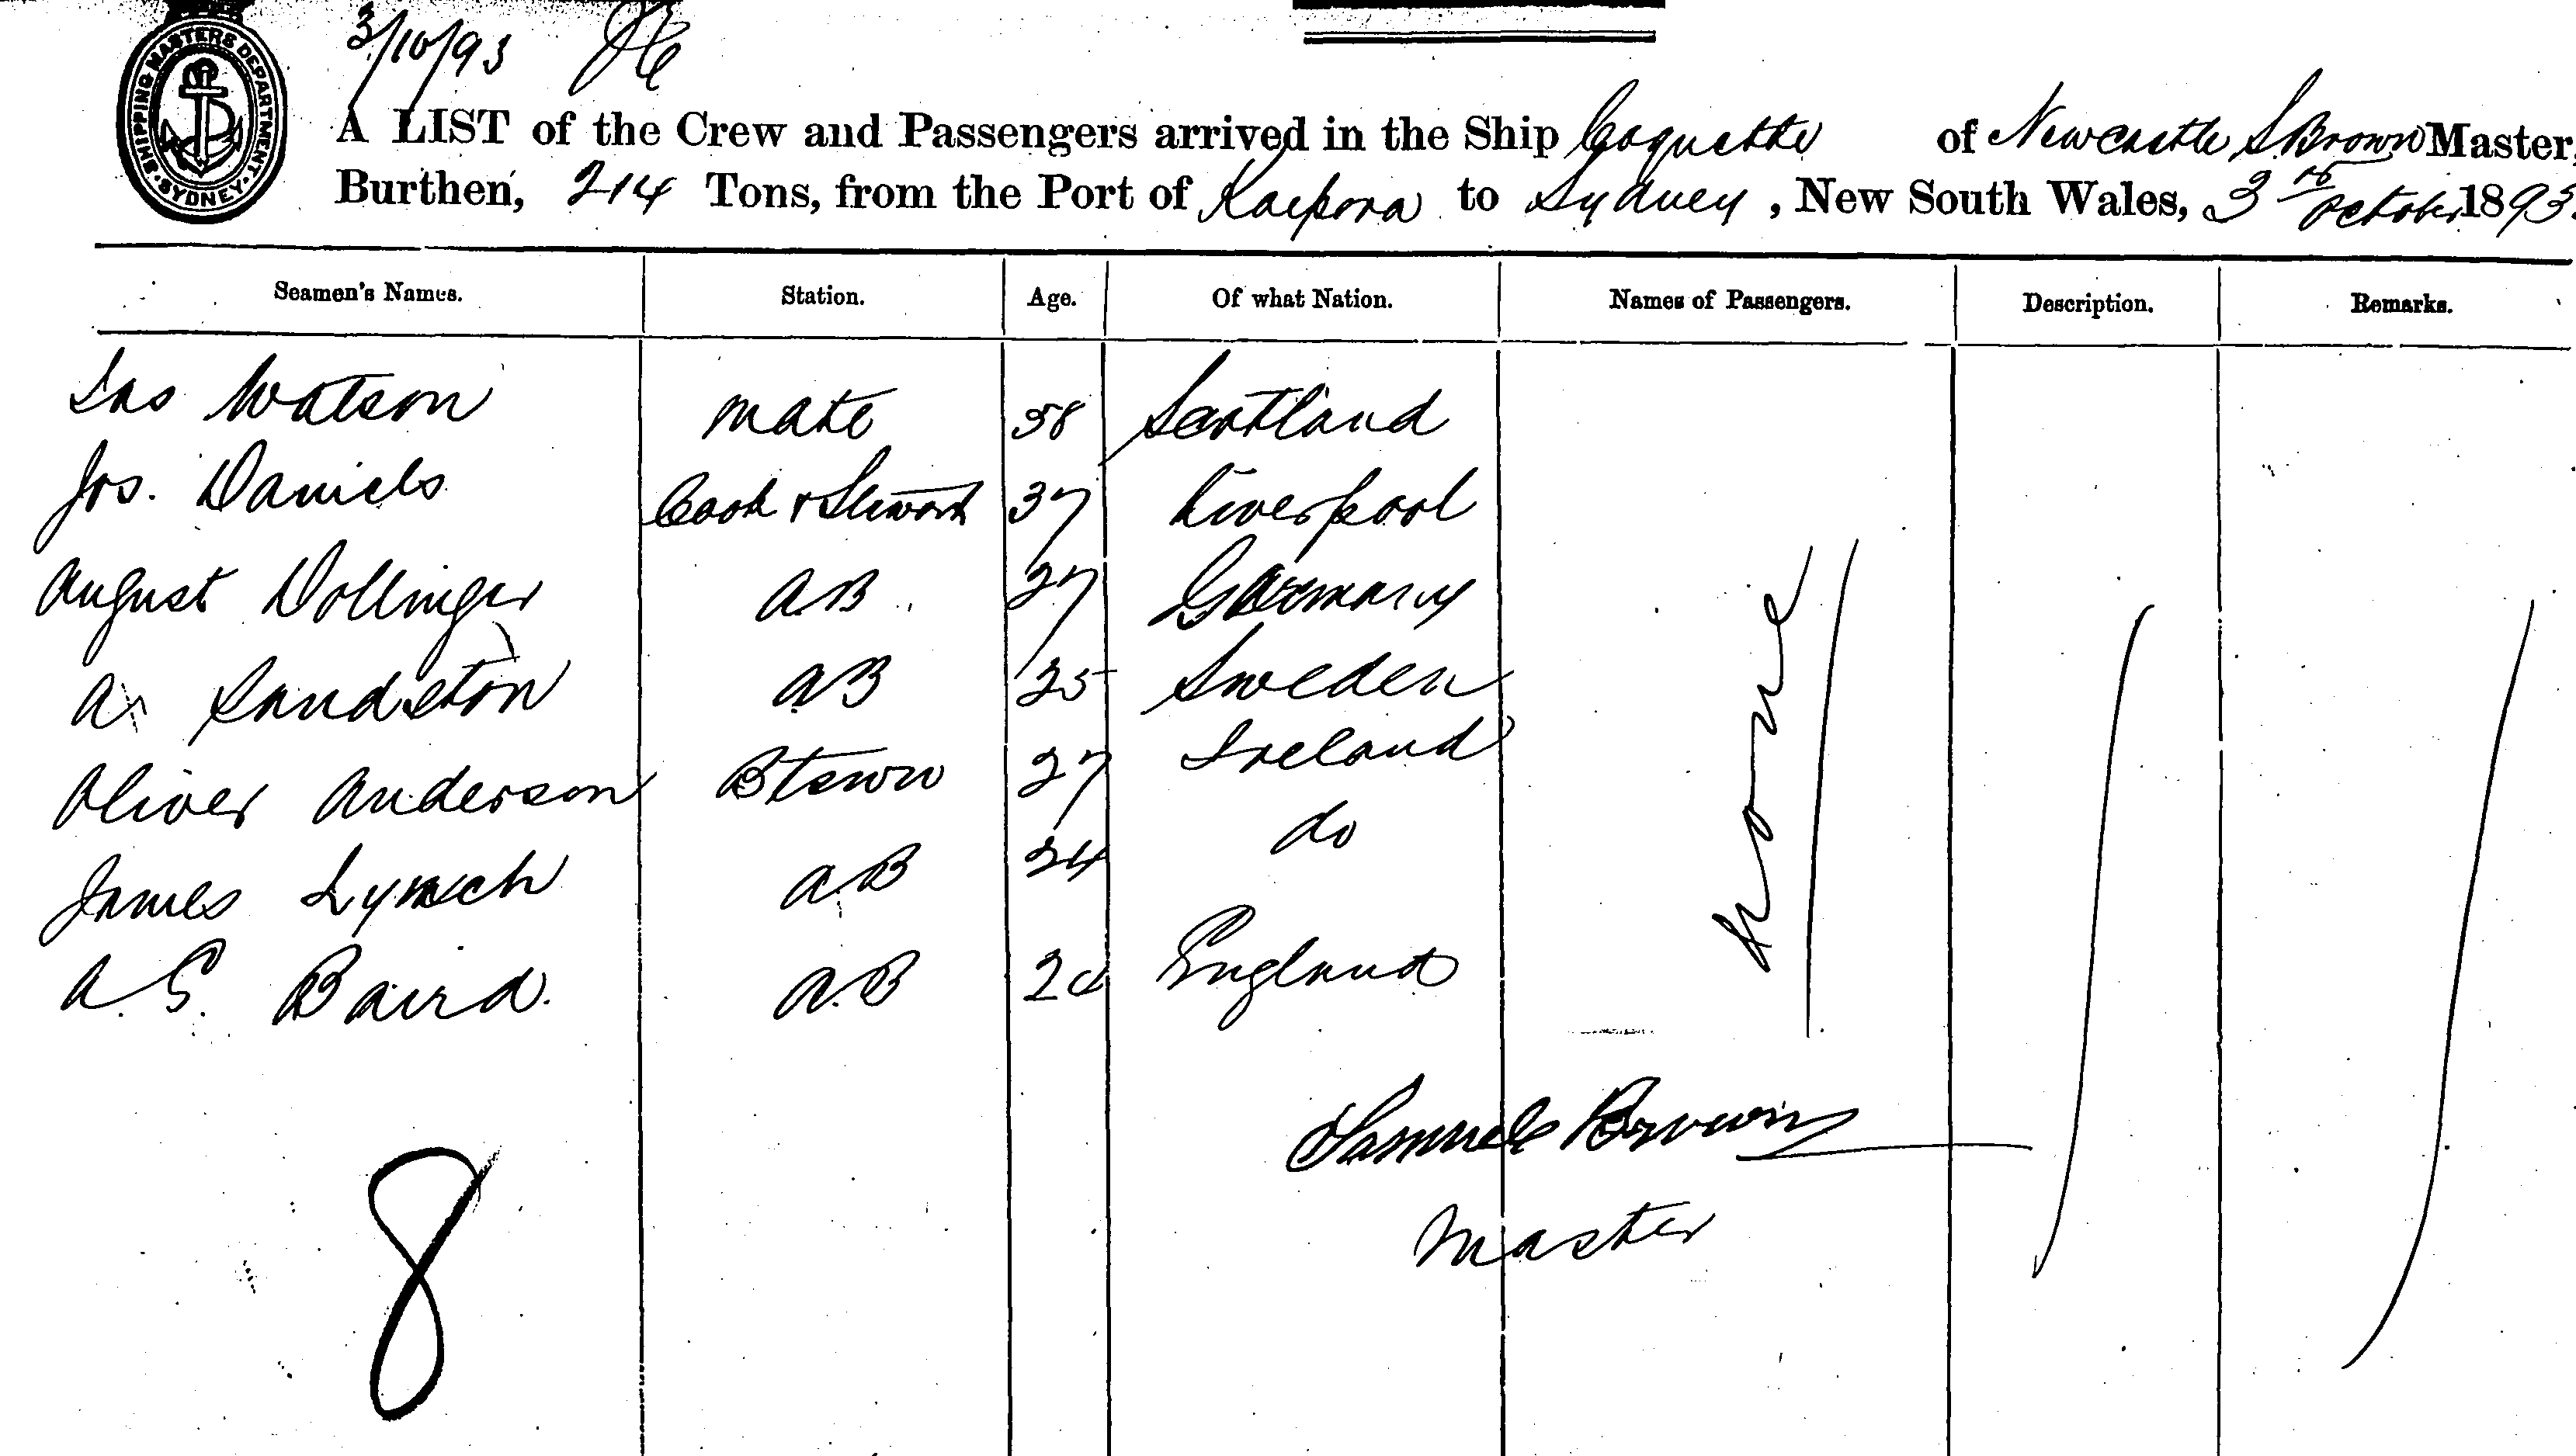 SHIPPING MASTERS DEPARTMENT · SYDNEY ·
3/10/93
A LIST of the Crew and Passengers arrived in the Ship Coquette of Newcastle S Brown Master,
Burthen, 214 Tons, from the Port of Kaipora to Sydney, New South Wales, 3rd October 1893.
Seamen's Names. Station. Age. Of what Nation. Names of Passengers. Description. Remarks.
Jas Watson mate 58 Scotland
Jos. Daniels Cook & Steward 37 Liverpool
August Dollinger AB 27 Germany
A Sandston AB 25 Sweden
Oliver Anderson 27 Ireland
James Lynch AB 24 do
A. G. Baird. A.B England
none
Samuel Brown
Master
8